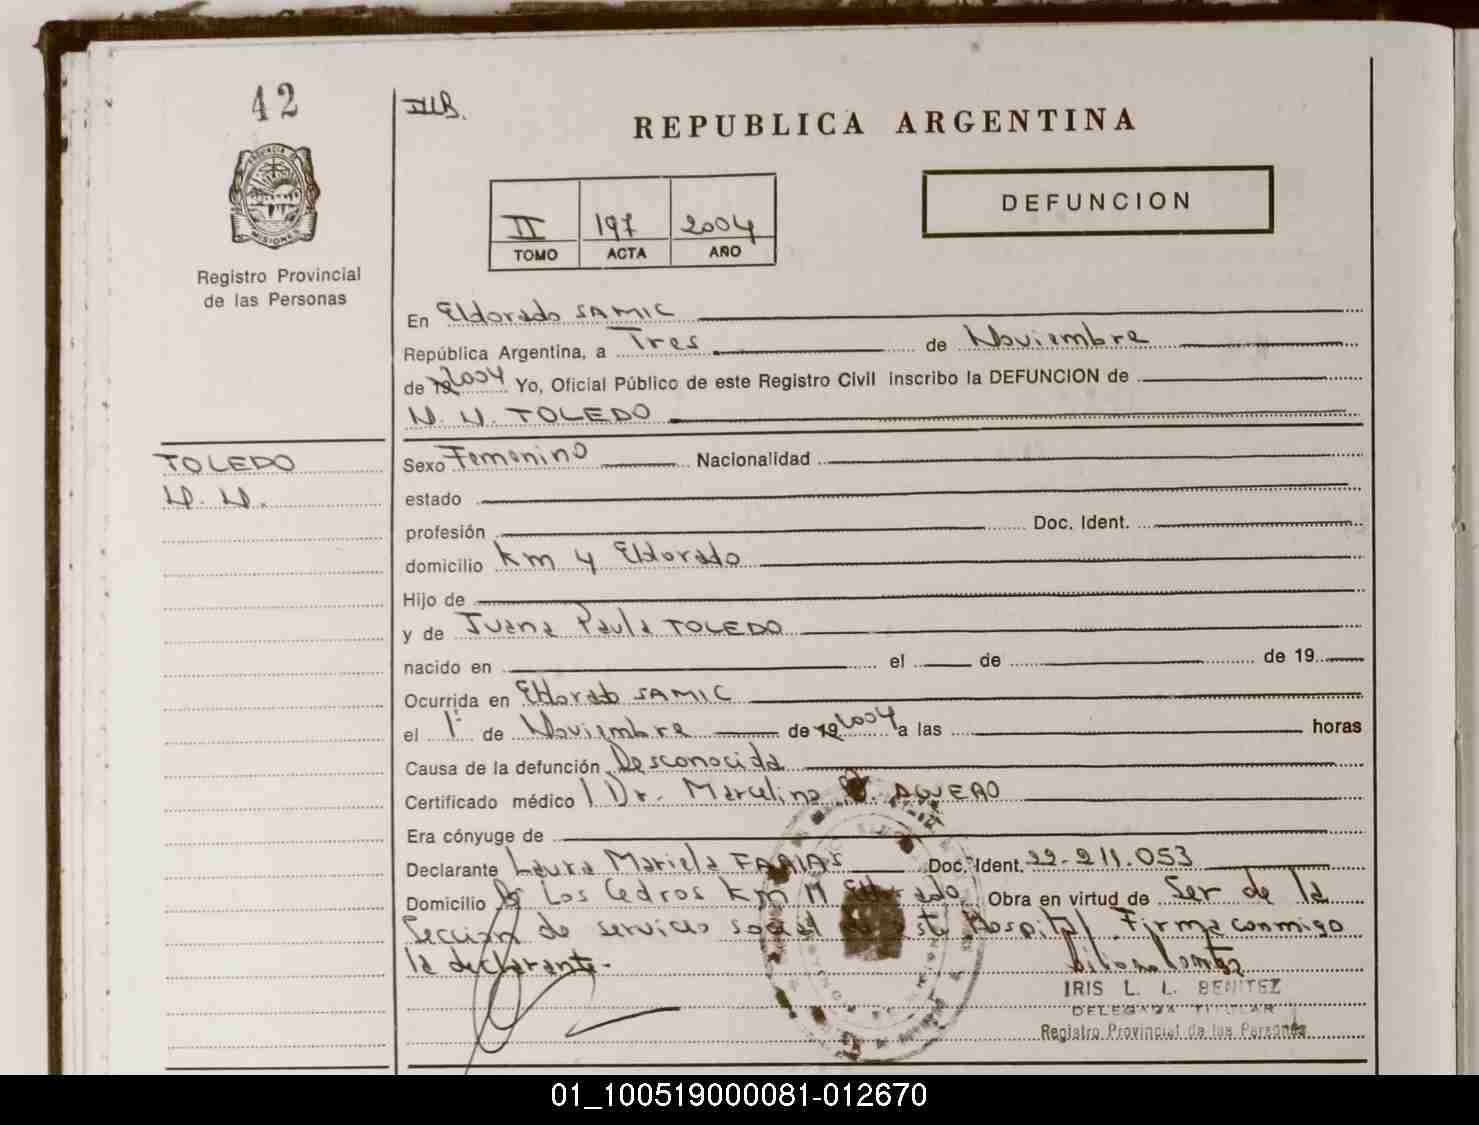 42
REPUBLICA ARGENTINA
DEFUNCION
II 197 2004
TOMO ACTA AÑO
PROVINCIA DE
MISIONES
Registro Provincial
de las Personas
En Eldorado SAMIC
República Argentina, a Tres de Noviembre
de 2004 Yo, Oficial Público de este Registro Civil inscribo la DEFUNCION de
N. N. TOLEDO
TOLEDO
N. N.
Sexo Femenino Nacionalidad
estado
profesión Doc. Ident.
domicilio Km 4 Eldorado
Hijo de
y de Juana Paula TOLEDO
nacido en el de de 19
Ocurrida en Eldorado SAMIC
el 1º de Noviembre de 19 2004 a las horas
Causa de la defunción Desconocida
Certificado médico Dr. Marcelino AGUERO
Era cónyuge de
Declarante Laura Mariela FARIAS Doc. Ident. 22.211.053
Domicilio Los Cedros Km 11 Eldorado Obra en virtud de Ser de la
Sección de servicio social de este Hospital Firma conmigo
la declarante.-
IRIS L. L. BENITEZ
DELEGADA TITULAR
Registro Provincial de las Personas
01_100519000081-012670